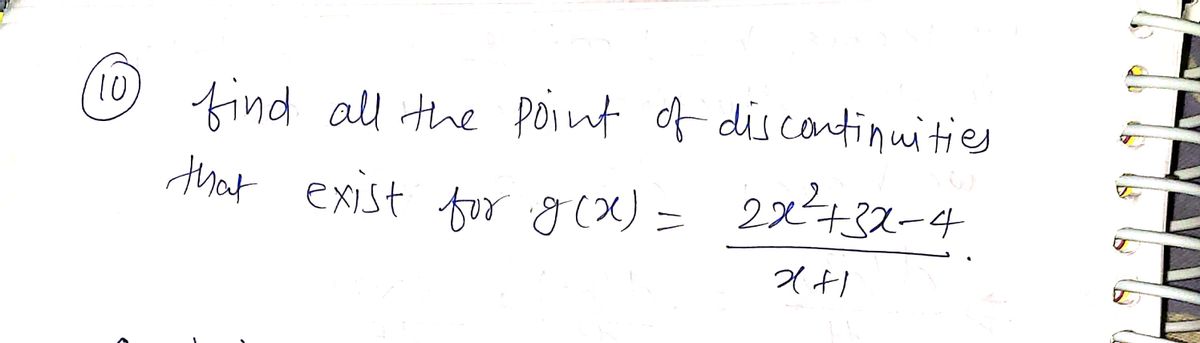 10 find all the point of discontinuities
that exist for g(x) = 2x²+3x-4
x+1 .